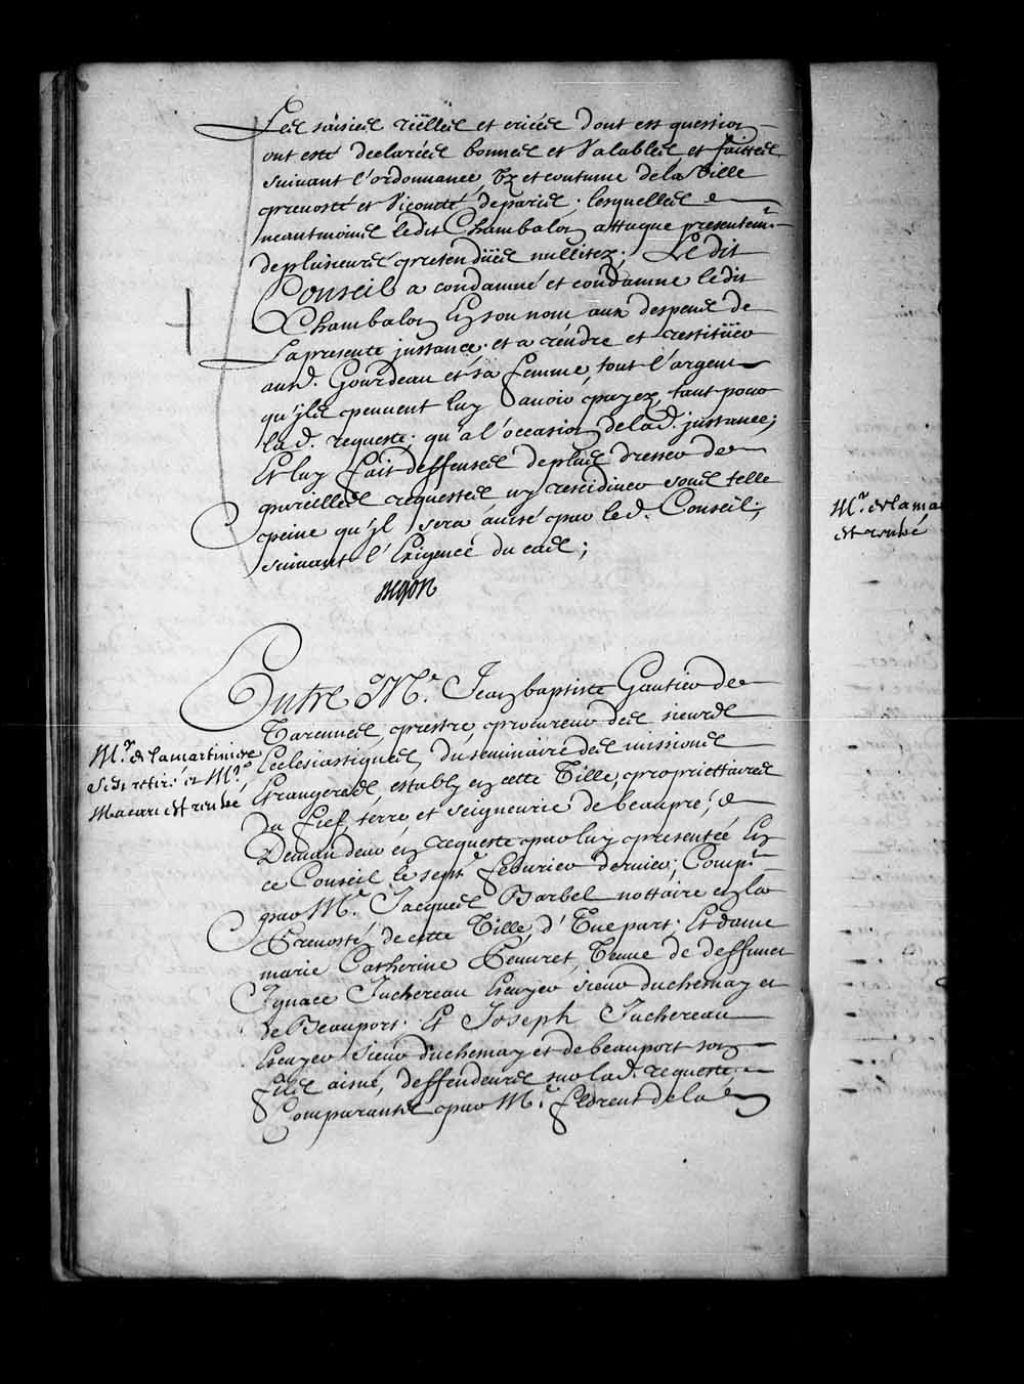 Les saisies réelles et criées dont est question
ont esté declarées bonnes et Valables et faittes
suivant l'ordonnance, Ex et coutume de la Ville
prevosté et Vicomté de paris; lesquelles
neantmoins ledit Chambalon attaque presentem.t
de plusieurs pretendües nullitez; Ledit
Conseil a condamné et condamne ledit
Chambalon En son nom aux despens de
La presente jnstance; et a réndre et restitüer
aud. Gourdeau et sa femme, tout l'argent
qu'jls peuvent luy avoir payez, tant pour
lad. requeste; qu'a l'occasion de lad. jnstance;
Et luy fait deffenses de plus dresser de
pareilles requestes ny recidiver sous telle
peine qu'jl sera avisé par led. Conseil;
suivant l'Exigence du cas;
Entre M.e Jean baptiste Gautier de
Varennes, prestre, procureur des sieurs
Ecclesiastiques, du seminaire des missions
Etrangeres, estably en cette Ville, propriettaires
du fief, terre, et seigneurie de beaupré;
Demandeur en requeste par luy presentée En
ce Conseil le sept.e febvrier dernier; Comp.t
par M.e Jacques Barbel nottaire en la
Prevosté de cette Ville, d'Une part; Et dame
marie Catherine Peuvret, Veuve de deffunct
Ignace Juchereau Escuyer sieur duchesnay et
de Beauport; Et Joseph Juchereau
Escuyer sieur duchesnay et de beauport son
fils aisné, deffendeurs sur lad. requeste;
Comparants par M.e florent de la
M.r de la martiniere
s'est retiré et M.r
Macart est rentré
M.r de la ma
est rentré